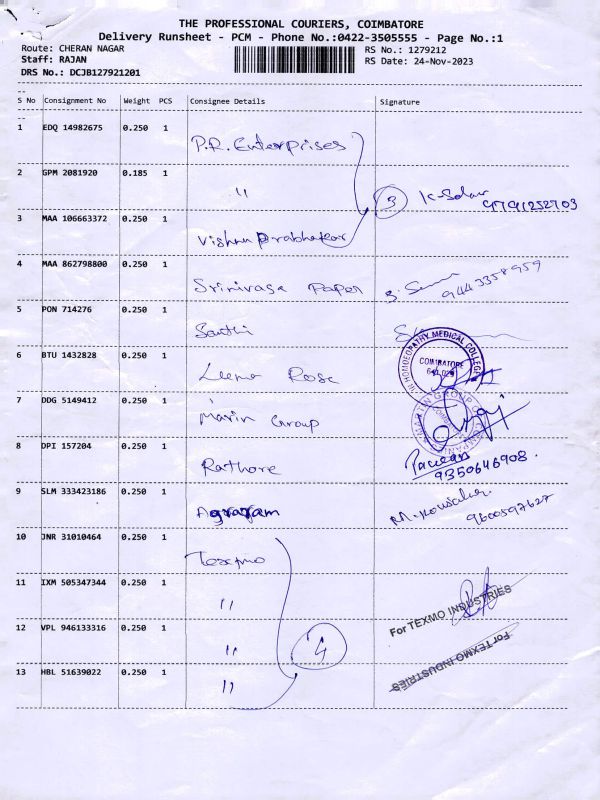 THE PROFESSIONAL COURIERS, COIMBATORE
Delivery Runsheet - PCM - Phone No.:0422-3505555 - Page No.:1
Route: CHERAN NAGAR RS No.: 1279212
Staff: RAJAN RS Date: 24-Nov-2023
DRS No.: DCJB127921201
S No Consignment No Weight PCS Consignee Details Signature
1 EDQ 14982675 0.250 1 P.R. Enterprises
2 GPM 2081920 0.185 1 " 3
3 MAA 106663372 0.250 1 Vishnu Prabhakar
4 MAA 862798800 0.250 1 Srinivasa Paper 9443358959
5 PON 714276 0.250 1 Santhi
6 BTU 1432828 0.250 1 Leema Rose HOMOEOPATHY MEDICAL COLLEGE COIMBATORE
7 DDG 5149412 0.250 1 Group MARTIN GROUP OF COMPANIES
8 DPI 157204 0.250 1 Rathore 9350646908
9 SLM 333423186 0.250 1 Agraram 9600597627
10 JNR 31010464 0.250 1 Texmo
11 IXM 505347344 0.250 1 " For TEXMO INDUSTRIES
12 VPL 946133316 0.250 1 " 4 For TEXMO INDUSTRIES
13 HBL 51639022 0.250 1 "